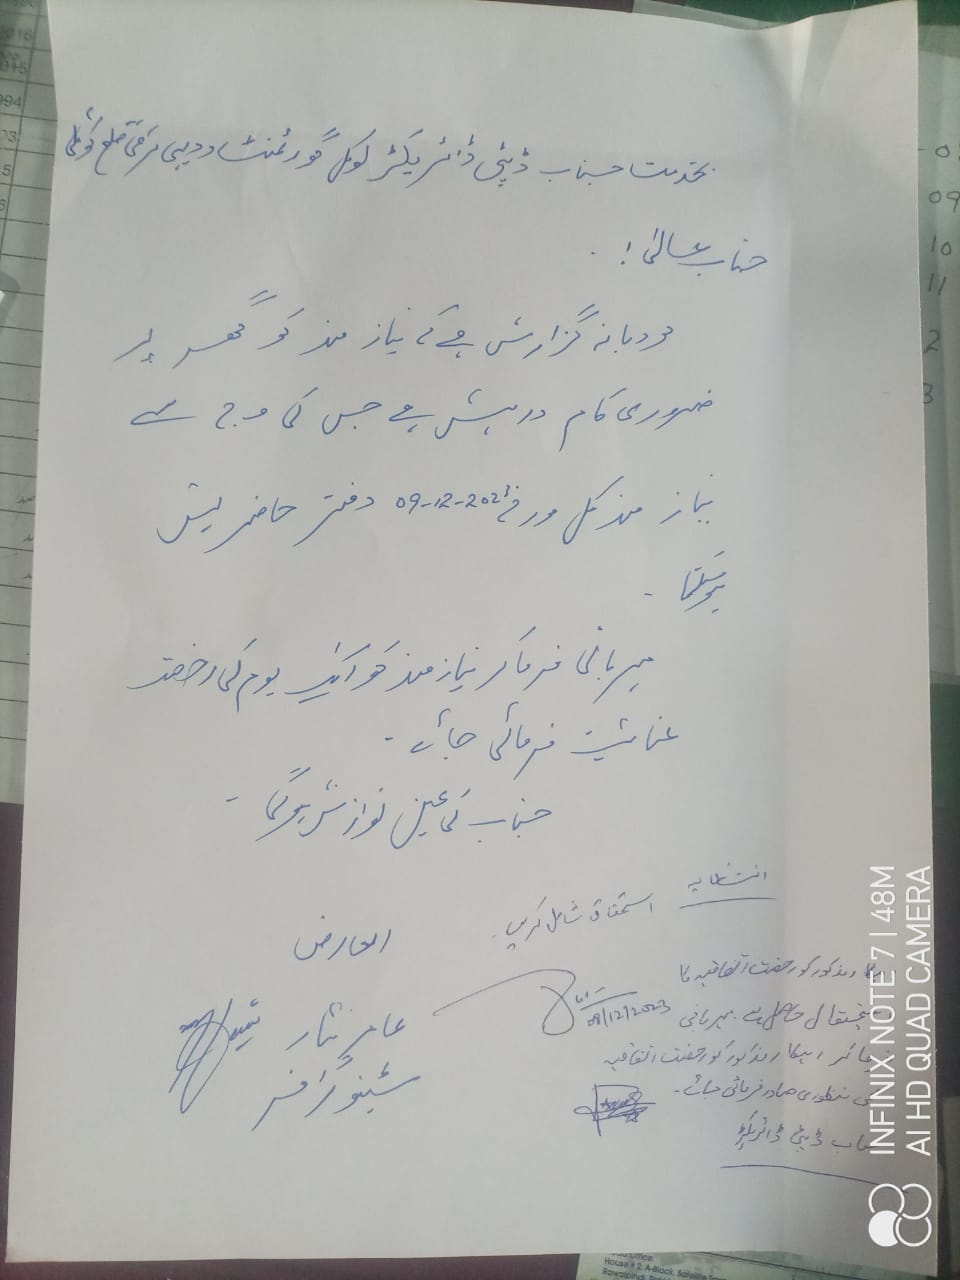 بخدمت جناب ڈپٹی ڈائریکٹر لوکل گورنمنٹ و دیہی ترقی ضلع کوٹلی
جناب عالی!
مودبانہ گزارش ہے کے نیاز مند کو گھر پر
ضروری کام درپیش ہے جس کی وجہ سے
نیاز مند کل مورخہ 09-12-2023 دفتر حاضر نہیں
ہو سکتا -
مہربانی فرما کر نیاز مند کو ایک یوم کی رخصت
عنائیت فرمائی جائے -
جناب کی عین نوازش ہو گی -
العارض
عامر نثار
سٹینو گرافر
انتظامیہ
استحقاق شامل کریں۔
08/12/2023
اہلکار مذکور کو رخصت اتفاقیہ کا
استحقاق حاصل ہے۔ مہربانی
فرما کر اہلکار مذکور کو رخصت اتفاقیہ
کی منظوری صادر فرمائی جائے۔
جناب ڈپٹی ڈائریکٹر
2016
2015
994
3
5
6
09
10
11
2
3
House # 2, A-Block, Satellite
Rawalpindi
INFINIX NOTE 7 | 48M
AI HD QUAD CAMERA